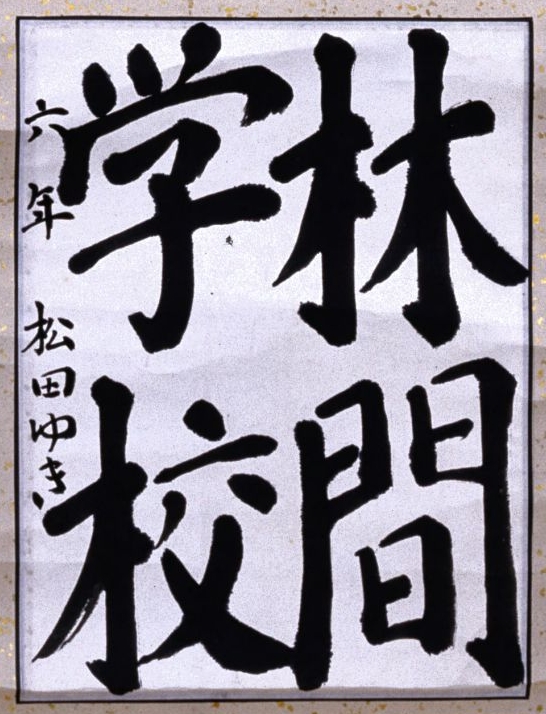 林間
学校
六年 松田ゆき